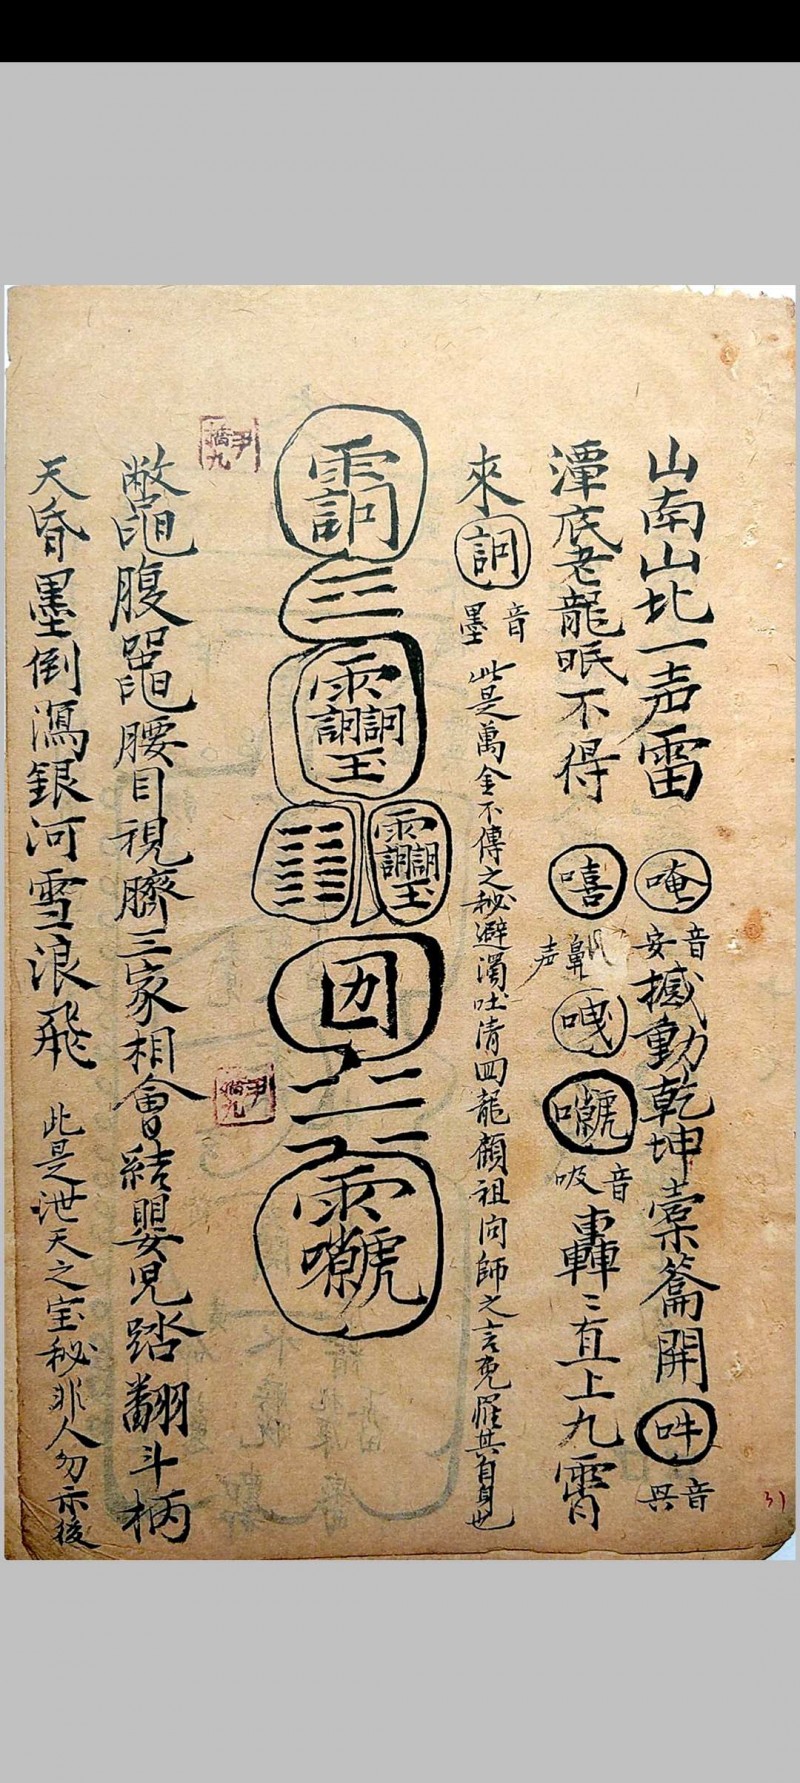 山南山北一声雷 唵 音安 撼動乾坤橐籥開 吽 音
潭底老龍眠不得 嘻 鼻声 吸音 轟〻直上九霄
來 訶 音墨 此是萬金不傳之秘避濁吐清四龍顧祖向師之言竟罹其自身也
雨訶
三
雨訶訶玉
雨訶訶玉
雨
尹九
尹九
鱉 腹 腰目視臍三家相會結嬰児踏翻斗柄
天昏墨倒瀉銀河雪浪飛 此是泄天之宝秘非人勿示後
31